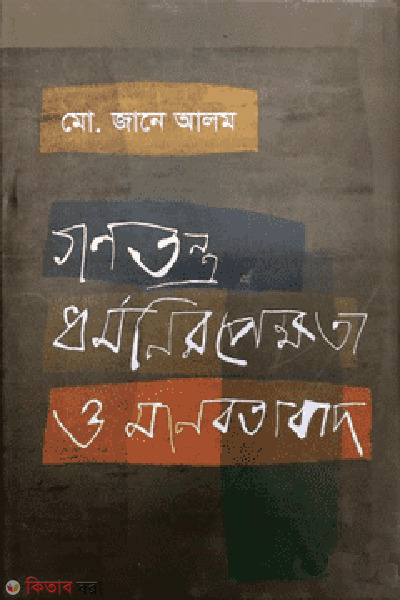 মো. জানে আলম
গণতন্ত্র
ধর্মনিরপেক্ষতা
ও মানবতাবাদ
কিতাব ঘর